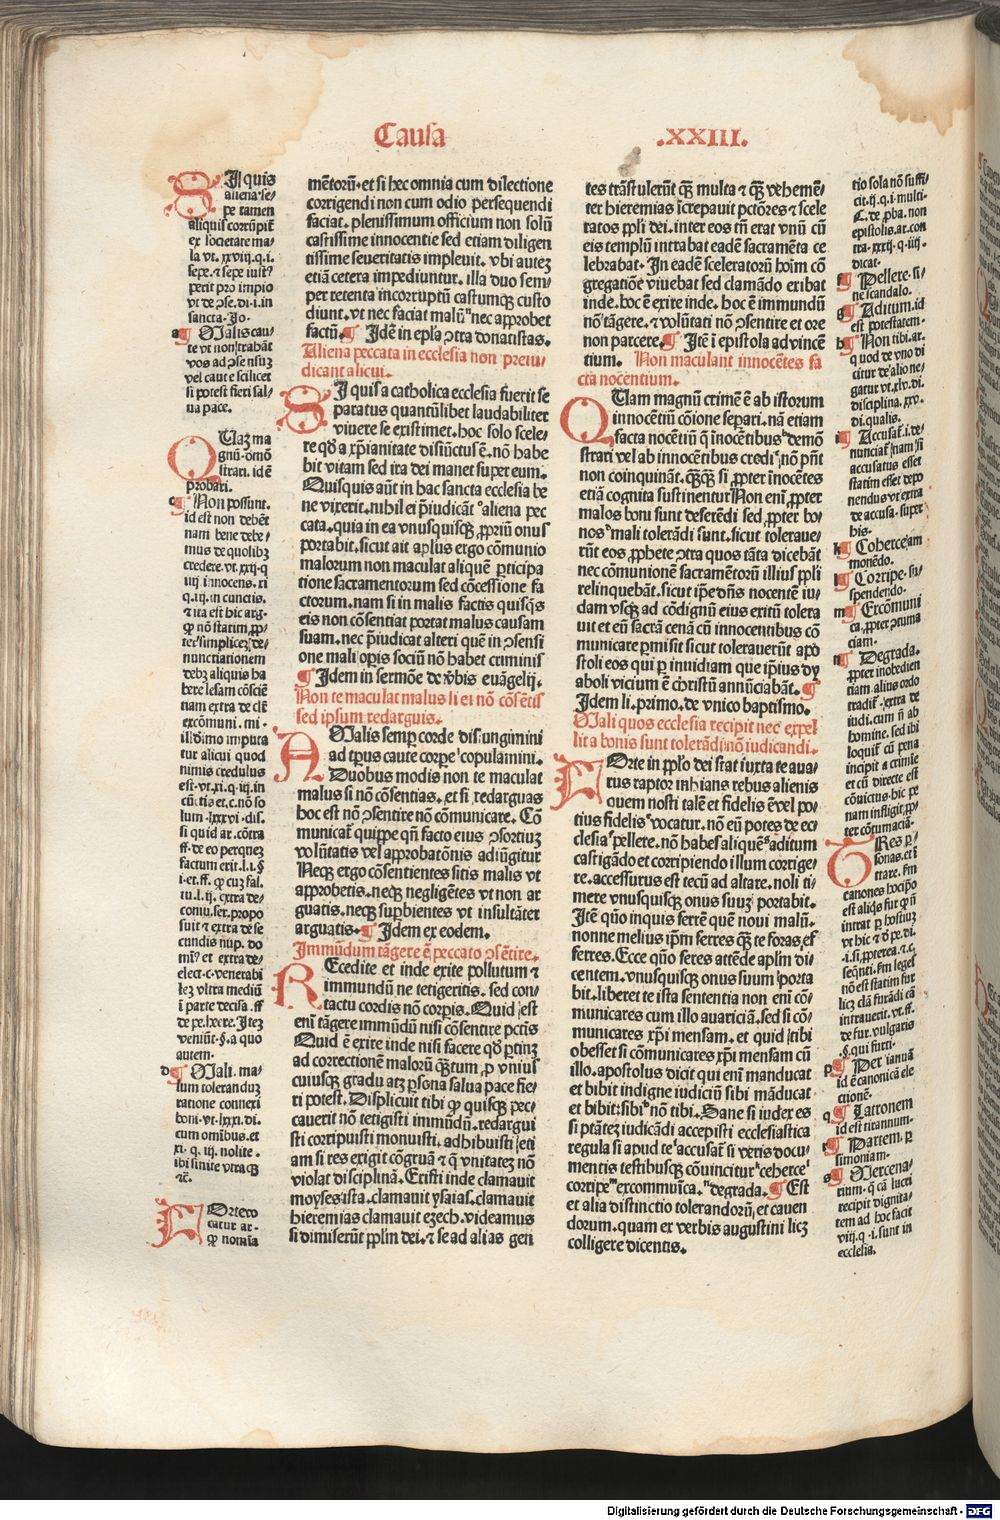 Causa
.XXIII.
SI quis
aliena se/
pe tamen
aliquis corrūpit̄
ex societate ma/
la vt. xxviij. q. i.
sepe. ⁊ sepe iust⁹
perit pro impio
vt de ↄse. di. i. in
sancta. Jo.
a¶ Malis cau/
te vt non trahāt
vos ad ↄsensuꝫ
vel caute scilicet
si potest fieri sal/
ua pace.
QUaꝫ ma
gnū. demō
strari. id ē
probari.
c¶ Non possunt.
id est non debēt
nam bene debe/
mus de quolibꝫ
credere. vt. xxij. q
iiij innocens. xi
q. iij. in cunctis.
⁊ ita est hic arg.
ꝙ nō statim ꝓp/
ter simplicem de/
nunctiationem
debꝫ aliquis ha
bere lesam cōsciē
tiam extra de clē
excōmuni. mi.
illi imputa
tur alicui quod
nimis credulus
est. vt. xi. q. iij. in
cūctis et. c. nō so
lum. lxxxvi. dis.
si quid ar. cōtra
ff. de eo per queꝫ
factum erit. l. i. §
i. et. ff. ꝙ cuꝫ fal.
tu. l. ij. extra de/
coniu. ser. propo
suit ⁊ extra de se
cundis nup. do
mi⁹ et extra de/
elect. c. venerabi
leꝫ vltra mediū
i parte decisa. ff
de pe. here. Iteꝫ
veniūt. §. a quo
autem.
d¶ Mali. ma/
lum tolerandum
ratione connexi
boni. vt. lxxxi. di.
cum omnibus. et
xi. q. iij. nolite.
ibi sinite vtraqꝫ
⁊c̄.
FOrte vo
catur ar.
ꝙ nomia
mētorū. et si hec omnia cum dilectione
corrigendi non cum odio persequendi
faciat. plenissimum officium non solū
castissime innocentie sed etiam diligen
tissime seueritatis impleuit. vbi autem
etiā cetera impediuntur. illa duo sem/
per retenta incorruptū castumqꝫ custo
diunt. vt nec faciat malū nec approbet
factū. ¶ Idē in epl̄a ↄtra donatistas.
Aliena peccata in ecclesia non preiu/
dicant alicui.
SI quis a catholica ecclesia fuerit se
paratus quantūlibet laudabiliter
viuere se existimet. hoc solo scele/
re qd̓ a xp̄ianitate disiūctus ē. nō habe
bit vitam sed ira dei manet super eum.
Quisquis aūt in hac sancta ecclesia be
ne vixerit. nihil ei p̄iudicāt aliena pec
cata. quia in ea vnusquisqꝫ ꝓpriū onus
portabit. sicut ait aplus ergo cōmunio
malorum non maculat aliquē ꝑticipa
tione sacramentorum sed cōcessione fa
ctorum. nam si in malis factis quisqꝫ
eis non cōsentiat portat malus causam
suam. nec p̄iudicat alteri quē in ↄsensi
one mali oꝑis sociū nō habet criminis
¶ Idem in sermōe de v̓bis euāgelij.
Non te maculat malus si ei nō cōsētis
sed ipsum redarguis.
A Malis semꝑ corde disiungimini
ad tp̄us caute corꝑe copulamini.
Duobus modis non te maculat
malus si nō cōsentias. et si redarguas
hoc est nō ↄsentire nō cōmunicare. Cō
municat̄ quippe qn̄ facto eius ↄsortiuꝫ
volūtatis vel approbatōnis adiūgitur
Neqꝫ ergo cōsentientes sitis malis vt
approbetis. neqꝫ negligētes vt non ar
guatis. neqꝫ suꝑbientes vt insultāter
arguatis. ¶ Idem ex eodem.
Immūdum tāgere ē peccato ↄsētire.
REcedite et inde exite pollutum ⁊
immundū ne tetigeritis. sed con/
tactu cordis nō corꝑis. Quid est
eni tāgere immūdū nisi cōsentire pctis
Quid ē exire inde nisi facere qd̓ ꝑtinꝫ
ad correctionem malorū q̄tum ꝓ vnius
cuiusqꝫ gradu atqꝫ ꝑsona salua pace fie/
ri potest. Displicuit tibi ꝙ quisqꝫ pec/
cauerit nō tetigisti immūdū. redargui
sti corripuisti monuisti. adhibuisti eti
am si res exigit cōgruā ⁊ q̄ vnitateꝫ nō
violat disciplinā. Existi inde clamauit
moyses ista. clamauit ysaias. clamauit
hieremias clamauit ezech. videamus
si dimiserūt ppl̄m dei. ⁊ se ad alias gen
tes trāstulerūt qꝫ multa ⁊ qꝫ vehemē/
ter hieremias īcrepauit pctōres ⁊ scele
ratos ppl̄i dei. inter eos tn̄ erat vnū cū
eis templū intrabat eadē sacramēta ce
lebrabat. In eadē sceleratorū hoīm cō
gregatiōe viuebat sed clamādo exibat
inde. hoc ē exire inde. hoc ē immundū
nō tāgere. ⁊ volūtati nō ↄsentire et ore
non parcere. ¶ Itē ī epistola ad vincē
tium. Non maculant innocētes fa
cta nocentium.
QUam magnū crimē ē ab istorum
innocētiū cōione seꝑari. nā etiam
facta nocētiū q̄ īnocētibus demō
strari vel ab innocētibus credi nō pn̄t
non coinquināt. q̄qꝫ si ꝓpter īnocētes
etiā cognita sustinentur Non eni ꝓpter
malos boni sunt deserēdi sed ꝓpter bo/
nos mali tolerādi sunt. sicut toleraue/
rūt eos ꝓphete ↄtra quos tāta dicebāt
nec cōmunionē sacramētorū illius ppl̄i
relinquebāt. sicut ip̄e dn̄s nocentē iu/
dam vsqꝫ ad cōdignū eius exitū tolera
uit et eū sacrā cenā cū innocentibus cō
municare ꝑmisit sicut tolerauerūt apō
stoli eos qui ꝑ inuidiam que ip̄ius dy
aboli vicium ē christū annūciabāt. ¶
Idem li. primo. de vnico baptismo.
Mali quos ecclesia recipit nec expel
lit a bonis sunt tolerādi nō iudicandi.
FOrte in ppl̄o dei stat iuxta te aua/
rus raptor inhians rebus alienis
quem nosti talē et fidelis ē vel po/
tius fidelis vocatur. nō eū potes de ec
clesia pellere. nō habes aliquē aditum
castigādo et corripiendo illum corrige/
re. accessurus est tecū ad altare. noli ti/
mere vnusquisqꝫ onus suuꝫ portabit.
Itē quō inquis ferrē quē noui malū.
nonne melius ip̄m ferres qꝫ te foras efferres
ferres. Ecce quō feres attēde aplm di/
centem. vnusquisqꝫ onus suum porta
bit. liberet te ista sententia non eni cō/
municares cum illo auariciā. sed si cō/
municares xp̄i mensam. et quid tibi
obesset si cōmunicares xp̄i mensam cū
illo. apostolus dicit qui eni manducat
et bibit indigne iudiciū sibi māducat
et bibit: sibi nō tibi. Sane si iudex es
si ptātez iudicādi accepisti ecclesiastica
regula si apud te accusat̄ si veris docu/
mentis testibusqꝫ cōuincitur coherce
corripe excommunica. degrada. ¶ Est
et alia distinctio tolerandorū et cauen
dorum. quam ex verbis augustini licꝫ
colligere dicentis.
tio sola nō suffi/
cit. ij. q. i. multi.
C. de ꝓba. non
epistolis. ar. con
tra. xxij. q. iiij.
dicat.
f¶ Pellere. si/
ne scandalo.
g¶ Aditum. id
est potestatem.
h¶ Non tibi. ar.
q uod de vno di
citur de alio ne/
gatur vt. xlv. di.
disciplina. xxv.
di. qualis.
i¶ Accusat̄. i. de/
nunciat̄ nam si
accusatus esset
statim esset depo
nendus vt extra
de accusa. super
his.
k¶ Coherce. am
monēdo.
l¶ Corripe. su/
spendendo.
m¶ Excōmuni
ca. ꝓpter ↄtuma
ciam.
n¶ Degrada.
ꝓpter inobedien
tiam. alius ordo
tradit̄. extra de
iudi. cum nō ab
homine. sed ibi
loquit̄ cū pena
incipit a crimīe
et cū directe est
cōuictus. hic pe
nam infligit ꝓp/
ter cōtumaciā.
TRes ꝑ/
sonas. et ī
trare. Fm
canones hoc īpo
est aliqꝫ fur ꝙ n̄
intrat ꝑ hostiuꝫ
vt hic ⁊ d̓ pe. di.
.i. si. ꝓpterea. ⁊. c.
seq̄nti. Fm leges
nō est statim fur
licꝫ clā furādi cā
intrauerit. vt. ff.
de fur. vulgaris
.§. qui furti.
p¶ Per ianuā
id ē canonicā ele
ctionē.
q¶ Latronem
id est tirannum.
r¶ Partem. ꝑ
simoniam.
s¶ Mercena/
rium. q̄ cā lucri
recipit dignita/
tem ad hoc facit
viij. q. i. sunt in
ecclesia.
Digitalisierung gefördert durch die Deutsche Forschungsgemeinschaft - DFG